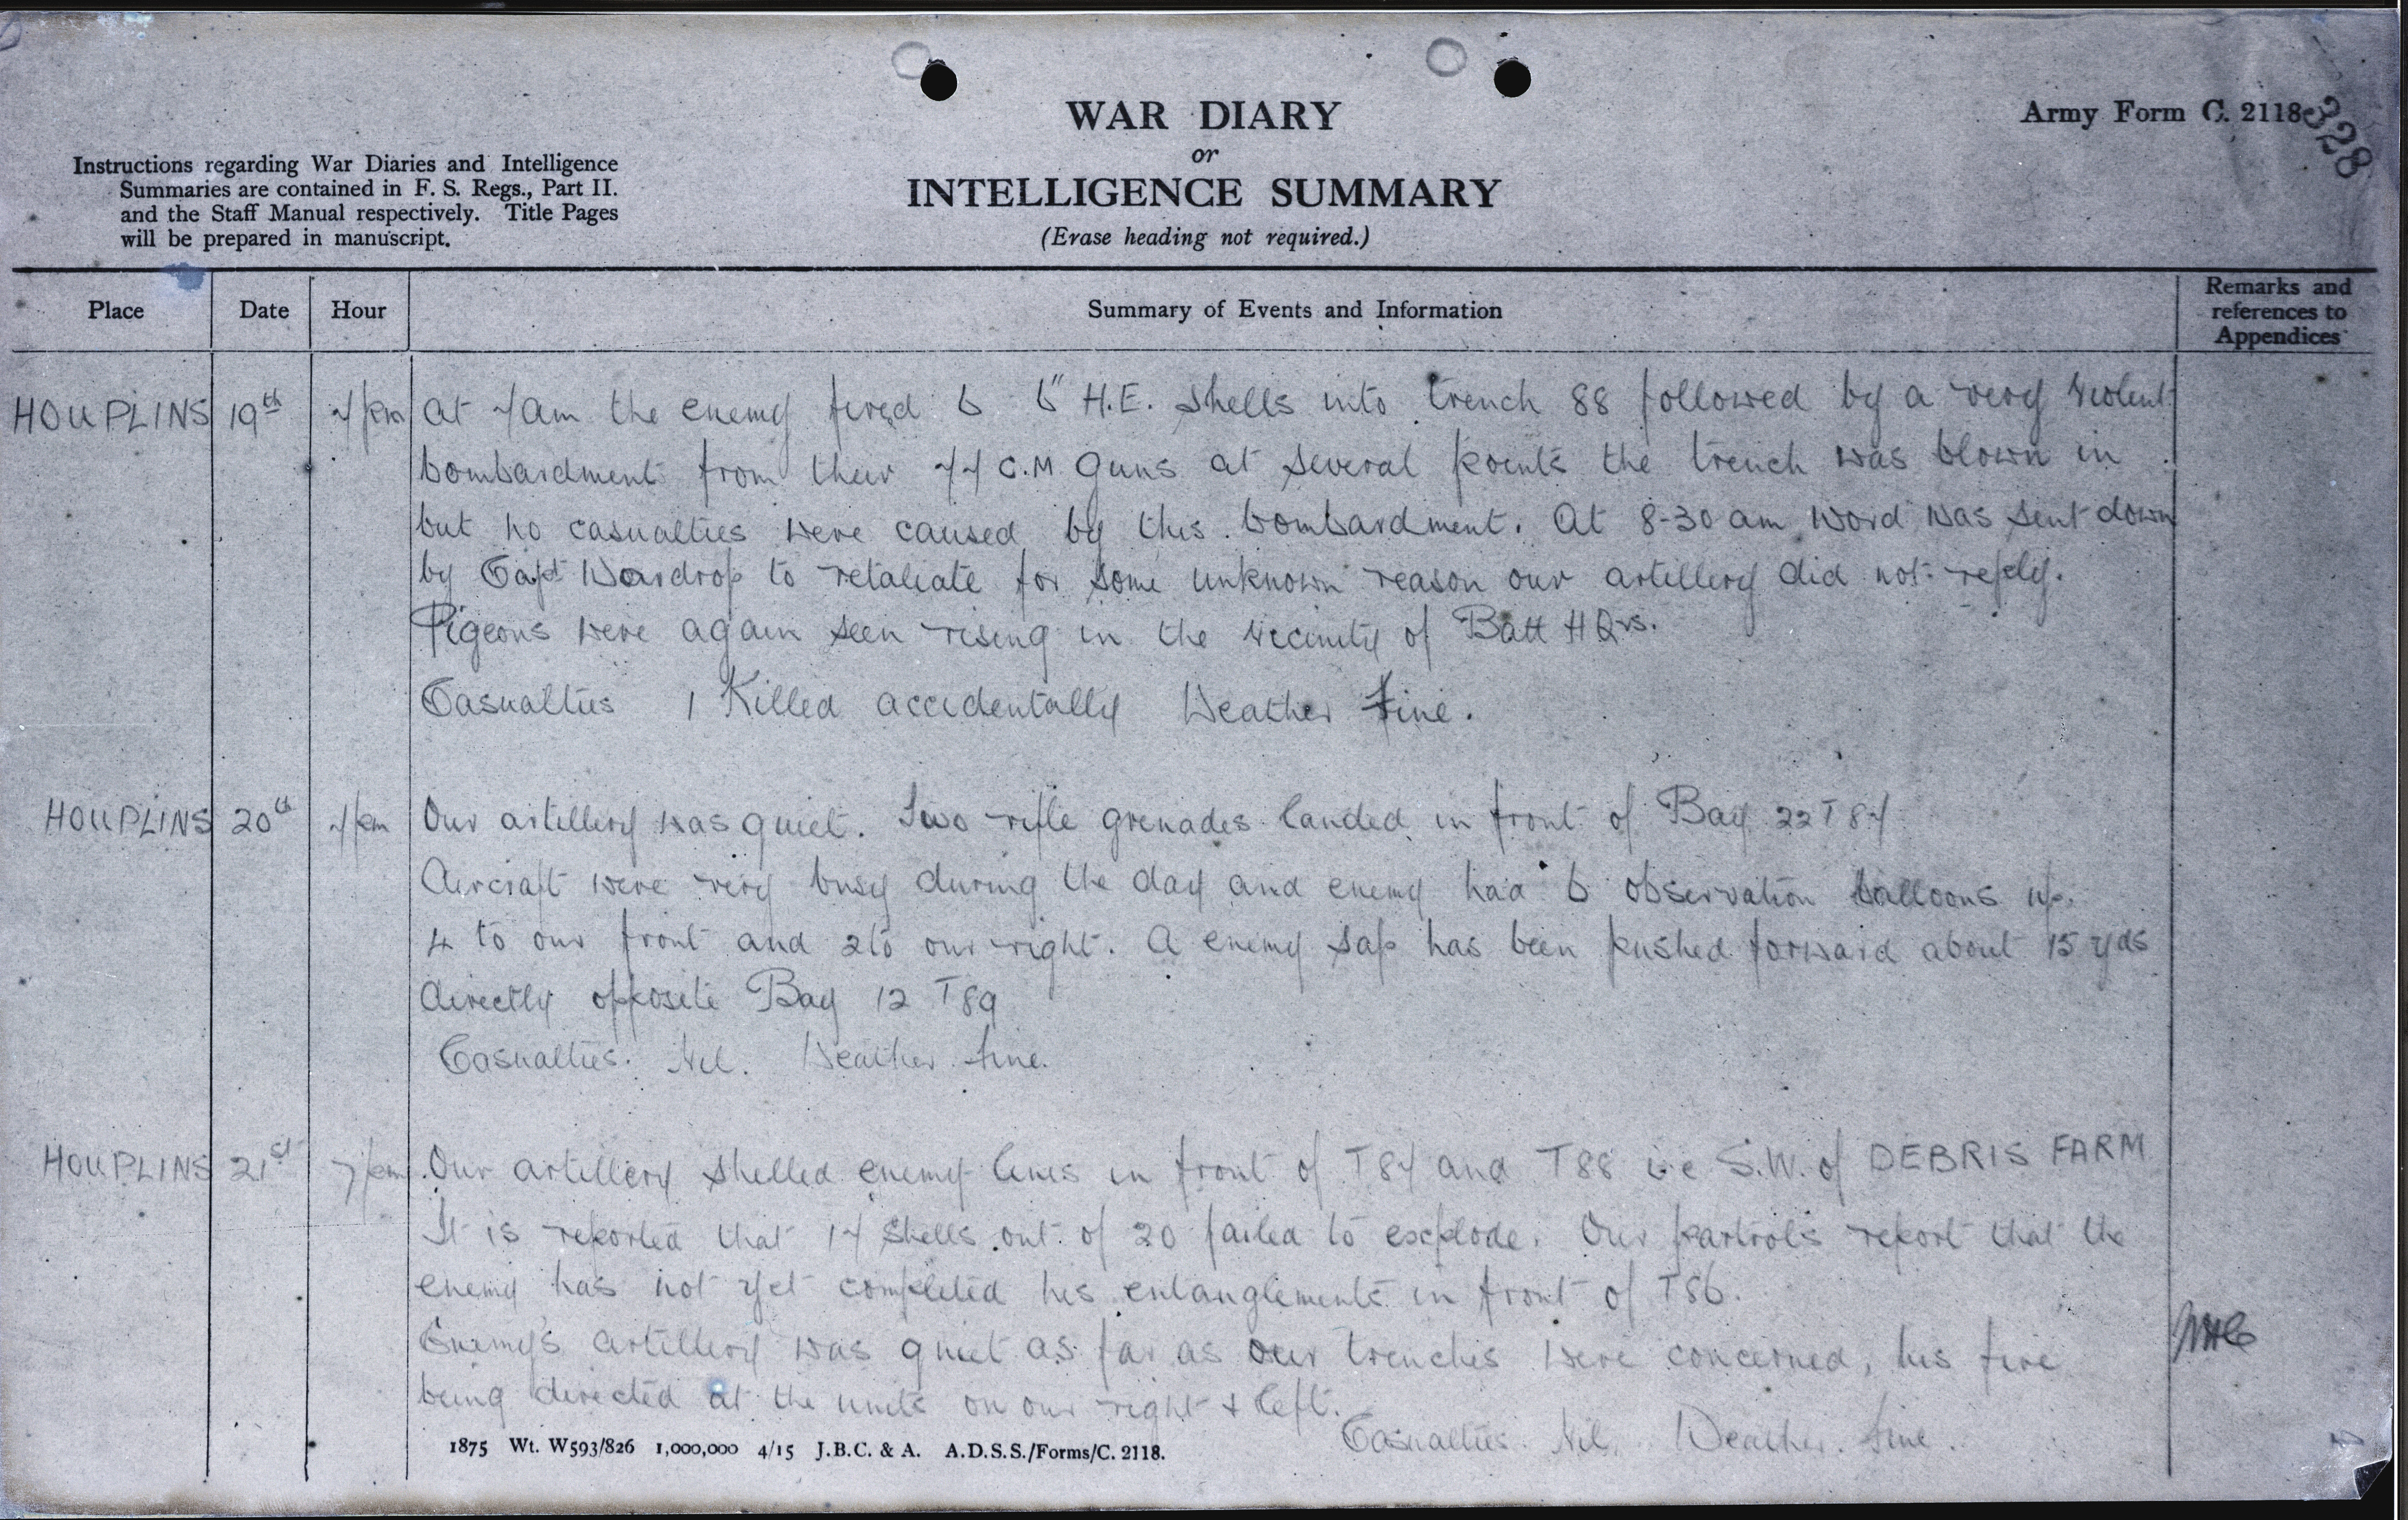 WAR DIARY
or
INTELLIGENCE SUMMARY
(Erase heading not required.)
Army Form C. 2118
328
Instructions regarding War Diaries and Intelligence
Summaries are contained in F. S. Regs., Part II.
and the Staff Manual respectively. Title Pages
will be prepared in manuscript.
Place Date Hour Summary of Events and Information Remarks and references to Appendices
HOUPLINS 19th 7pm At 7am the enemy fired 6 6" H.E. shells into trench 88 followed by a very violent
bombardment from their 77 C.M. Guns at several points the trench was blown in
but no casualties were caused by this bombardment. At 8-30 am word was sent down
by Capt Wardrop to retaliate for some unknown reason our artillery did not reply.
Pigeons were again seen rising in the vicinity of Batt HQrs.
Casualties 1 Killed accidentally Weather Fine.
HOUPLINS 20th 7pm Our artillery was quiet. Two rifle grenades landed in front of Bay 22 T 87
Aircraft were very busy during the day and enemy had 6 observation balloons up.
4 to our front and 2 to our right. A enemy sap has been pushed forward about 15 yds
directly opposite Bay 12 T89
Casualties. Nil. Weather fine.
HOUPLINS 21st 7pm Our artillery shelled enemy lines in front of T87 and T88 i.e S.W. of DEBRIS FARM
It is reported that 17 shells out of 20 failed to explode. Our partrols report that the
enemy has not yet completed his entanglements in front of T86.
Enemy's artillery was quiet as far as our trenches were concerned, his fire
being directed at the units on our right & left.
Casualties. Nil. Weather. fine.
1875 Wt. W593/826 1,000,000 4/15 J.B.C. & A. A.D.S.S./Forms/C. 2118.